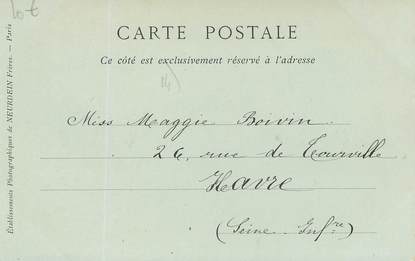 10 €
CARTE POSTALE
Ce côté est exclusivement réservé à l'adresse
Miss Maggie Boivin.
26, rue de Tourville
Havre
(Seine Infre)
Établissements Photographiques de NEURDEIN Frères. — Paris